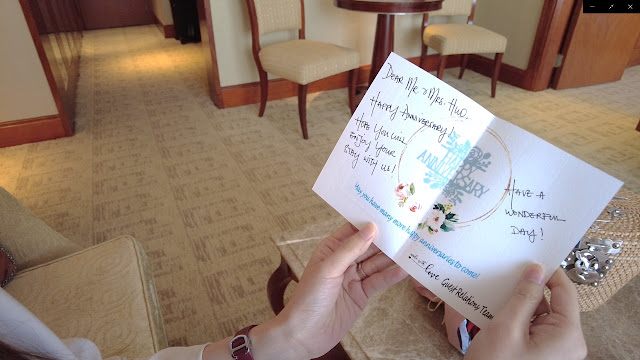 DEAR MR & MRS. HUO.
HAPPY ANNIVERSARY
HOPE YOU WILL
ENJOY YOUR
STAY WITH US!
HAPPY
ANNIVERSARY
May you have many more happy anniversaries to come!
HAVE A
WONDERFUL
DAY!
with love
Guest Relations Team